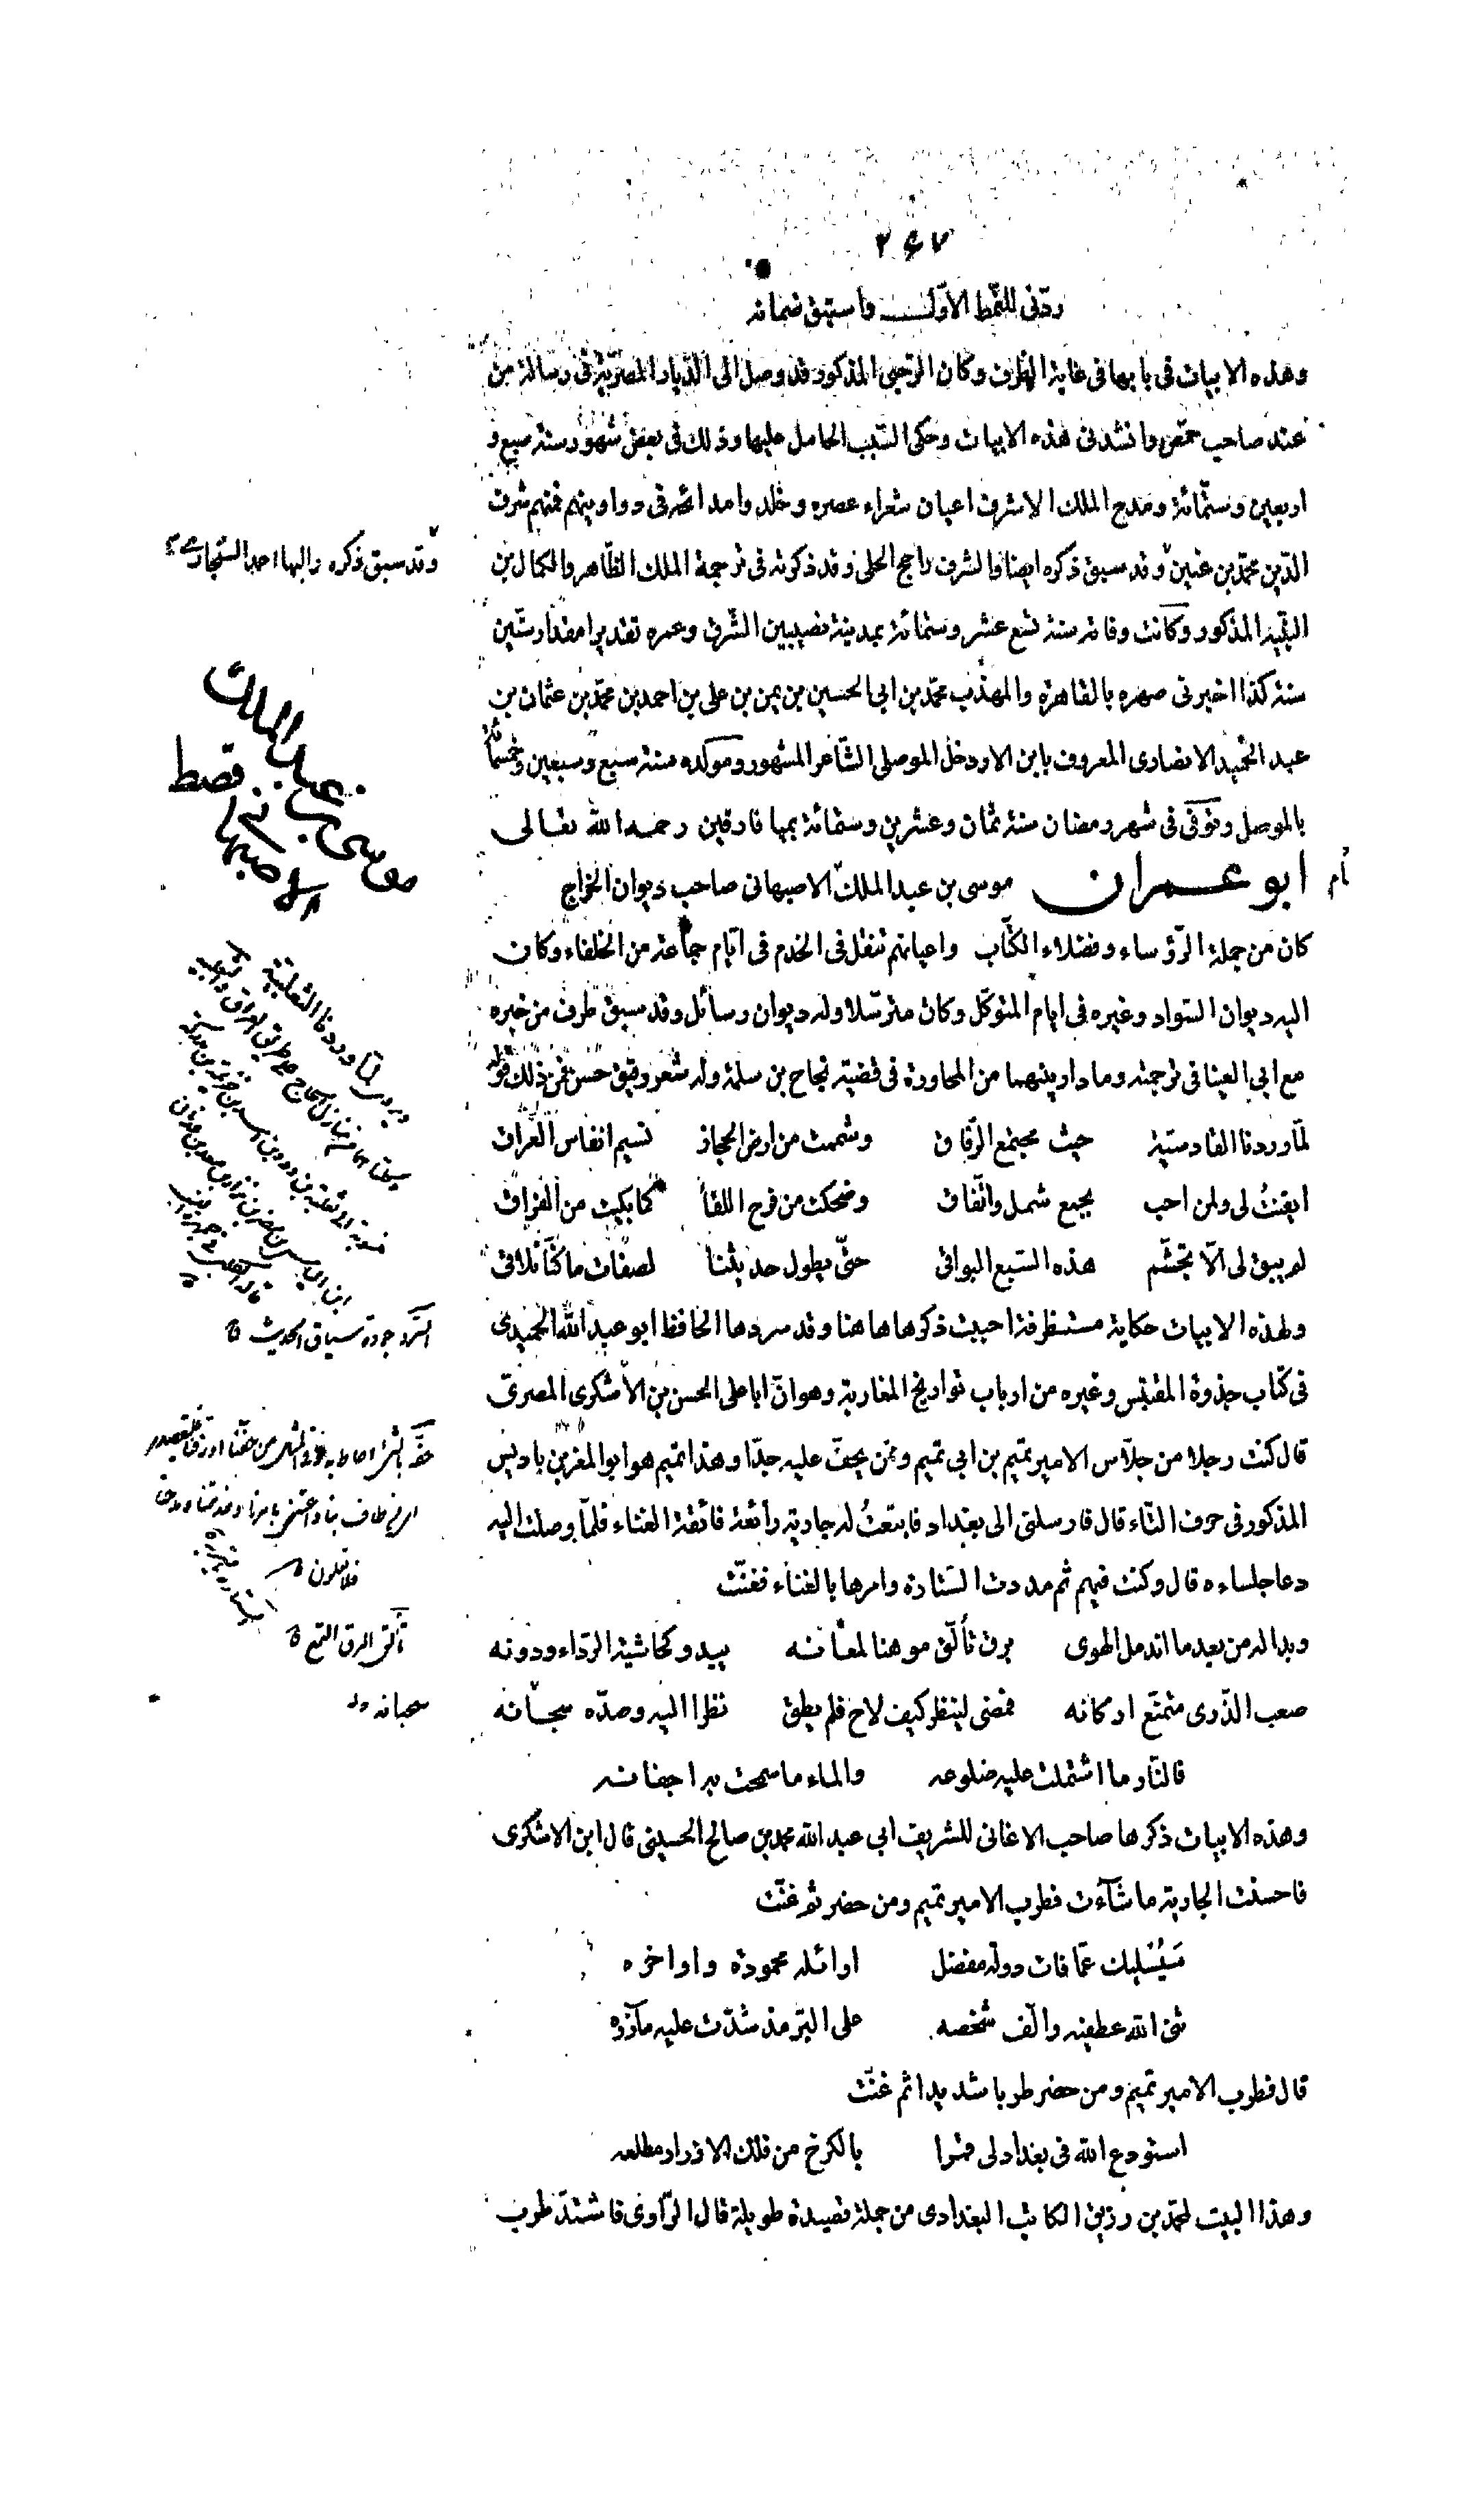 ٢٤٧
ردّنى للنمط الاوّل واستبق ضمانه
وهذه الابيات فى بابها فى غاية الظرف وكان الرّحبى المذكور قد وصل الى الديار المصريّة فى رسالة من
عند صاحب حمص وانشدنى هذه الابيات وحكى السّبب الحامل عليها وذلك فى بعض شهور سنة سبع و
اربعين وستّمائة ومدح الملك الاشرف اعيان شعراء عصره وخلدوا مدائحه فى دواوينهم فمنهم شرف
الدّين محمّد بن عنين وقد سبق ذكره ايضا والشرف راجح الحلى وقد ذكرته فى ترجمة الملك الظّاهر والكمال بن
النّبيه المذكور وكانت وفاته سنة تسع عشر وستمائة بمدينة نصيبين الشّرق وعمره تقديرا مقدار ستّين
سنة كذا اخبرنى صهره بالقاهرة والمهذّب محمّد بن ابى الحسين بن يمن بن على بن احمد بن محمّد بن عثمان بن
عبد الحميد الانصارى المعروف بابن الاردخل الموصلى الشّاعر المشهور ومولده سنة سبع وسبعين وخمسمائة
بالموصل وتوفّى فى شهر رمضان سنة ثمان وعشرين وستمائة بميافارقين رحمه الله تعالى
ابو عمران موسى بن عبد الملك الاصبهانى صاحب ديوان الخراج
كان من جملة الرّؤساء وفضلاء الكتّاب واعيانهم تنقل فى الخدم فى ايّام جماعة من الخلفاء وكان
اليه ديوان السّواد وغيره فى ايام المتوكّل وكان مترسّلا وله ديوان رسائل وقد سبق طرف من خبره
مع ابى العينا فى ترجمته وما دار بينهما من المحاورة فى قضيّة نجاح بن سلمة وله شعر رقيق حسن فمن ذلك قوله
لمّا وردنا القادسيّة حيث مجتمع الرّفاق وشممت من ارض الحجاز نسيم انفاس العراق
ايقنتُ لى ولمن احب بجمع شمل واتّفاق وضحكت من فرح اللقا كما بكيت من الفراق
لم يبق لى الّا تجشّم هذه السّبع البواقى حتّى يطول حديثنا لصفات ما كنّا نلاقى
ولهذه الابيات حكاية مستظرفة احببت ذكرها هاهنا وقد سردها الحافظ ابو عبد الله الحميدى
فى كتاب جذوة المقتبس وغيره من ارباب تواريخ المغاربة وهو انّ ابا على الحسن بن الاشكرى المصرىّ
قال كنت رجلا من جلّاس الامير تميم بن ابى تميم وممّن يخفّ عليه جدّا وهذا تميم هو ابو المعز بن باديس
المذكور فى حرف التّاء قال فارسلنى الى بغداد فابتعتُ له جارية رائعة فائقة الغناء فلمّا وصلت اليه
دعا جلساءه قال وكنت فيهم ثم مددت السّتارة وامرها بالغناء فغنّت
وبدا له من بعد ما اندمل الهوى برق تألّق موهنا لمعانه يبدو كحاشية الرّداء ودونه
صعب الذّرى متمنّع اركانه فمضى لينظر كيف لاح فلم يطق نظرا اليه وصدّه سجّانه
فالنّار ما اشتملت عليه ضلوعه والماء ما سمحت به اجفانه
وهذه الابيات ذكرها صاحب الاغانى للشريف ابى عبد الله محمد بن صالح الحسينى قال ابن الاشكرى
فاحسنت الجارية ما شاءت فطرب الامير تميم ومن حضر ثم غنّت
سَيُسليك عمّا فات دولة مفضل اوائله محمودة واواخره
ثنى الله عطفيه والّف شخصه على البرّ مذ شدّت عليه مآزره
قال فطرب الامير تميم ومن حضر طربا شديدا ثم غنّت
استودع الله فى بغداد لى قمرا بالكرخ من فلك الازرار مطلعه
وهذا البيت لمحمّد بن رزيق الكاتب البغدادى من جملة قصيدة طويلة قال الرّاوى فاشتدّ طرب
وقد سبق ذكره والبها احمد السنجارى
موسى بن عبد الملك
الاصبهانى
السّرد جودة سياق الحديث
فلا تغلون
تألّق البرق التمع